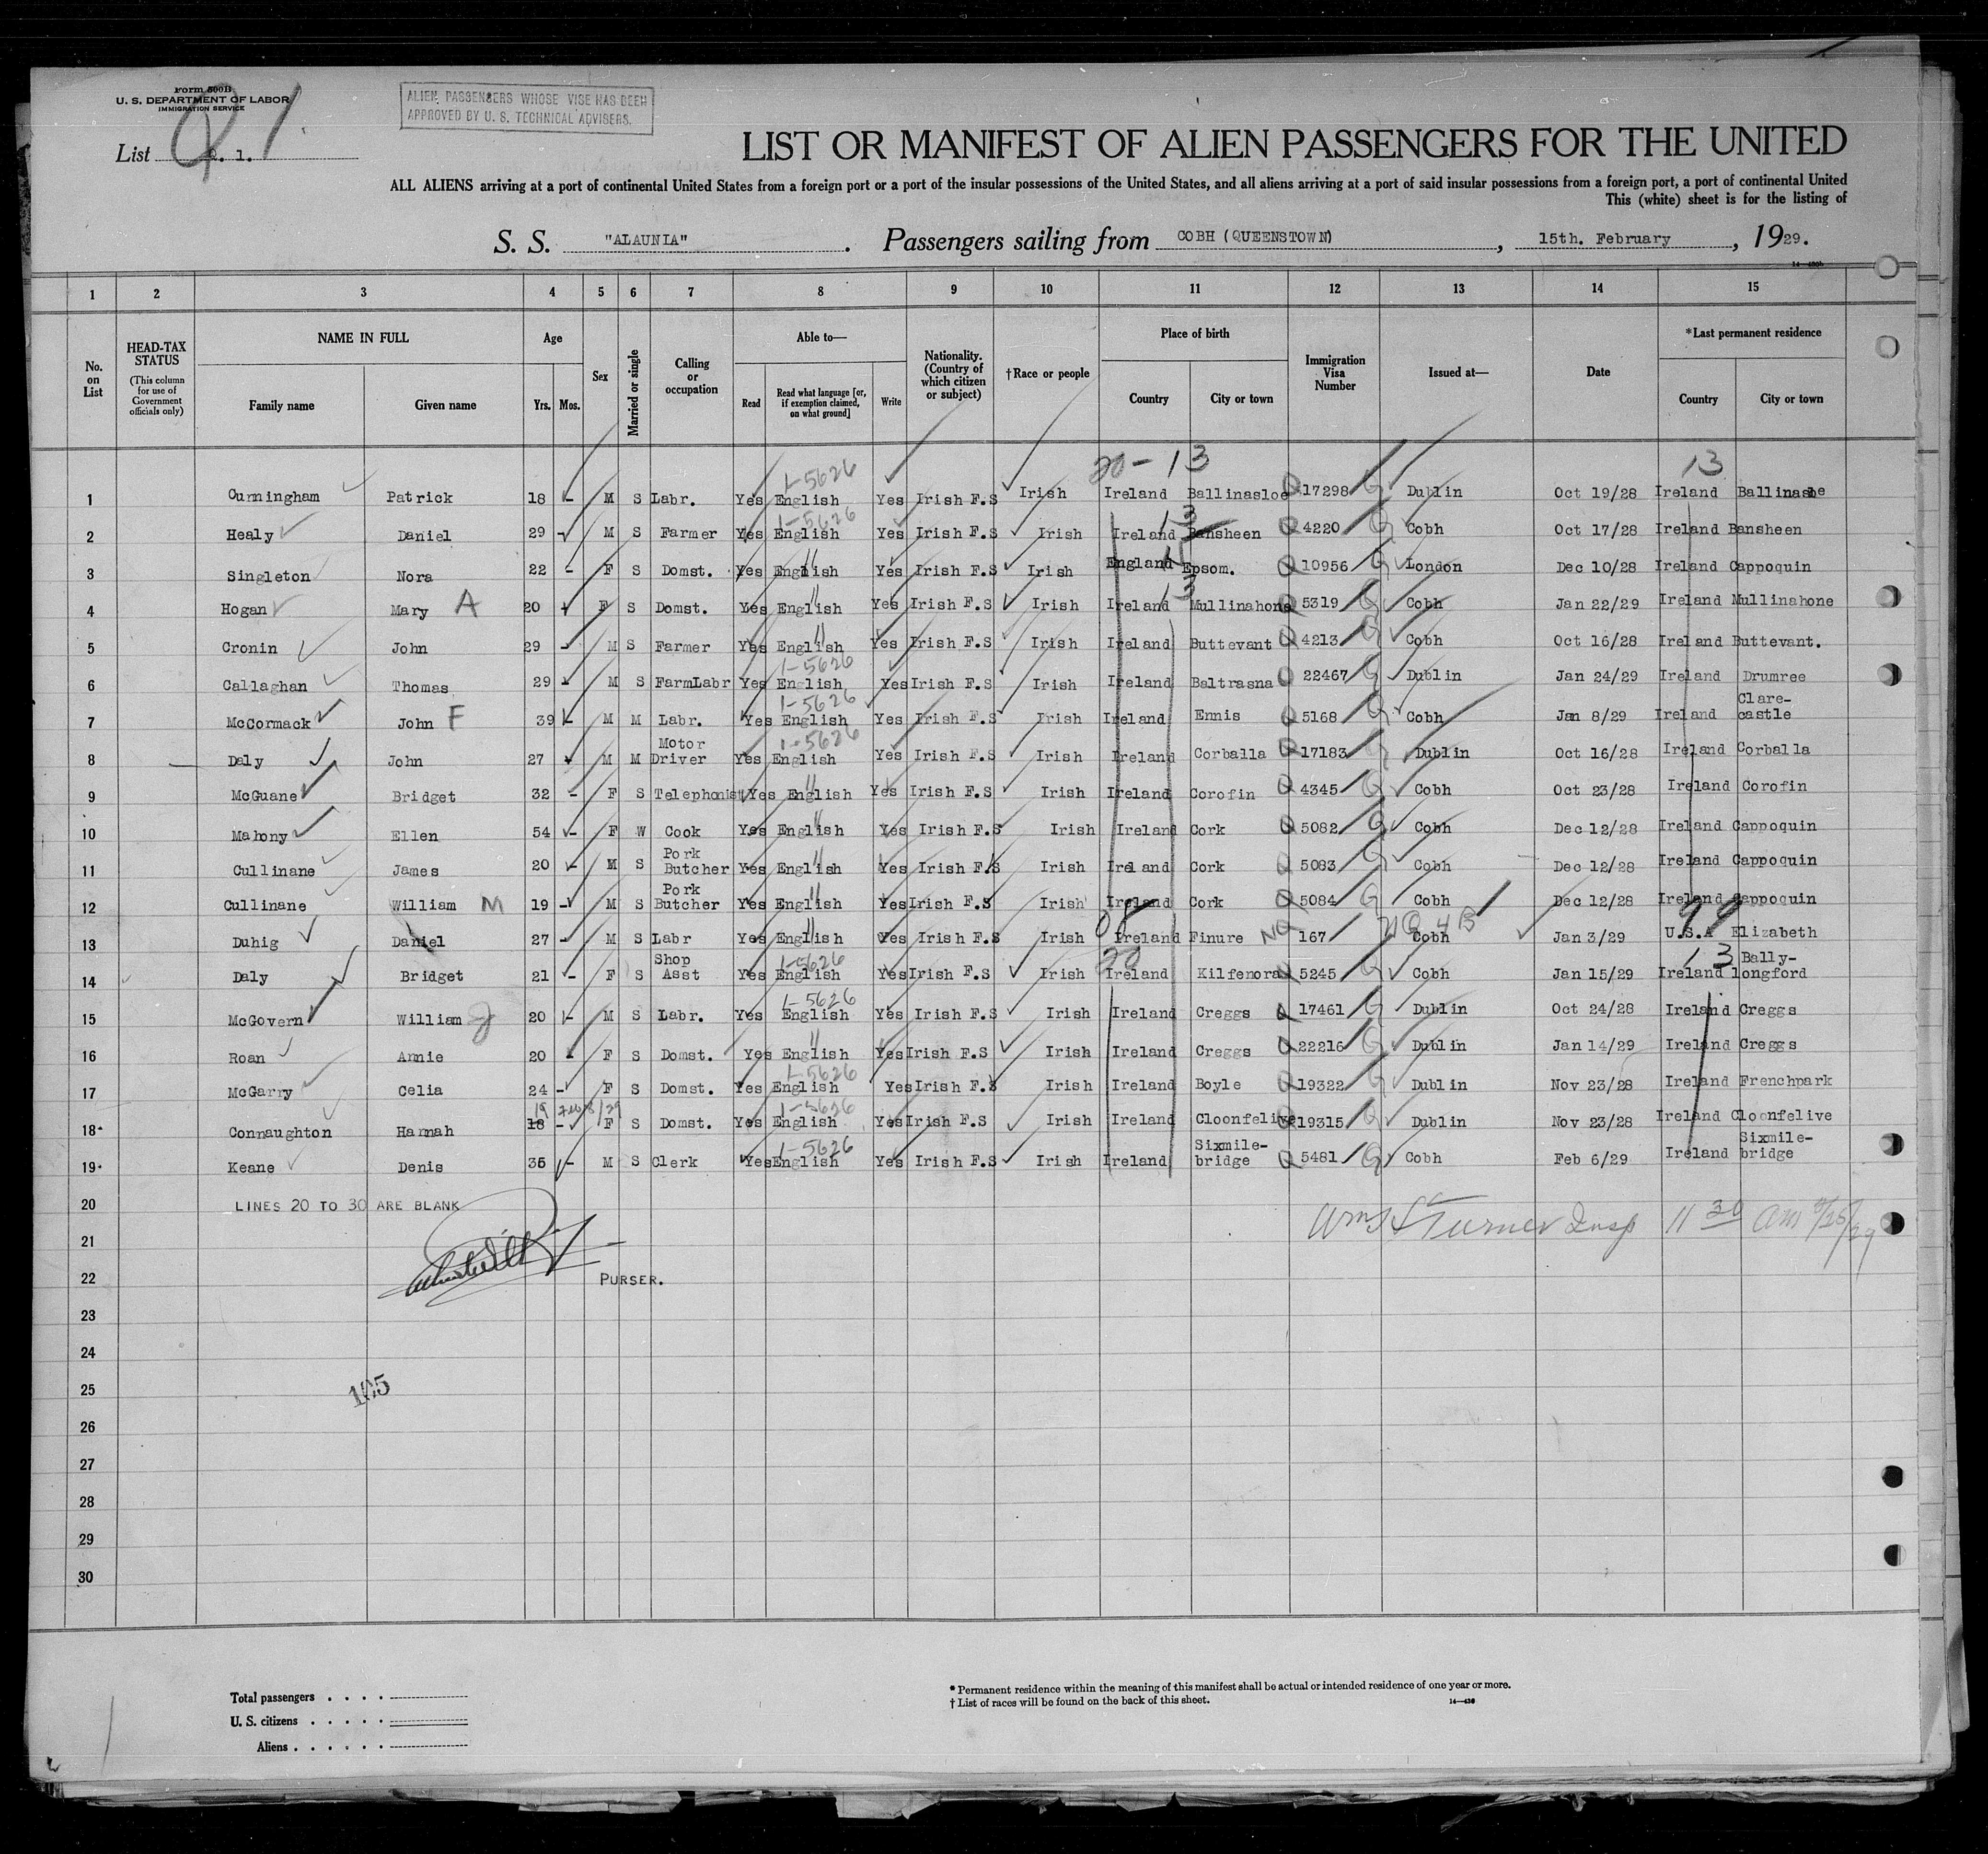 Form 500B
U. S. DEPARTMENT OF LABOR
IMMIGRATION SERVICE
ALIEN PASSENGERS WHOSE VISE HAS BEEN
APPROVED BY U. S. TECHNICAL ADVISERS.
List Q. 1.
Q 1
LIST OR MANIFEST OF ALIEN PASSENGERS FOR THE UNITED
ALL ALIENS arriving at a port of continental United States from a foreign port or a port of the insular possessions of the United States, and all aliens arriving at a port of said insular possessions from a foreign port, a port of continental United
This (white) sheet is for the listing of
S. S. "ALAUNIA". Passengers sailing from COBH (QUEENSTOWN), 15th. February, 1929.
1 2 3 4 5 6 7 8 9 10 11 12 13 14 15
No. on List
HEAD-TAX STATUS (This column for use of Government officials only)
NAME IN FULL
Family name Given name
Age
Yrs. Mos.
Sex
Married or single
Calling or occupation
Able to—
Read
Read what language [or, if exemption claimed, on what ground]
Write
Nationality. (Country of which citizen or subject)
†Race or people
Place of birth
Country City or town
Immigration Visa Number
Issued at—
Date
*Last permanent residence
Country City or town
20-13 13
1-5626
1 Cunningham Patrick 18 - M S Labr. Yes English Yes Irish F.S Irish Ireland Ballinasloe Q 17298 G Dublin Oct 19/28 Ireland Ballinasloe
1-5626 13
2 Healy Daniel 29 - M S Farmer Yes English Yes Irish F.S Irish Ireland Bansheen Q 4220 G Cobh Oct 17/28 Ireland Bansheen
" 15
3 Singleton Nora 22 - F S Domst. Yes English Yes Irish F.S Irish England Epsom. Q 10956 G London Dec 10/28 Ireland Cappoquin
" 13
4 Hogan Mary A 20 - F S Domst. Yes English Yes Irish F.S Irish Ireland Mullinahone Q 5319 G Cobh Jan 22/29 Ireland Mullinahone
"
5 Cronin John 29 - M S Farmer Yes English Yes Irish F.S Irish Ireland Buttevant Q 4213 G Cobh Oct 16/28 Ireland Buttevant.
1-5626
6 Callaghan Thomas 29 - M S FarmLabr Yes English Yes Irish F.S Irish Ireland Baltrasna Q 22467 G Dublin Jan 24/29 Ireland Drumree
1-5626
7 McCormack John F 39 - M M Labr. Yes English Yes Irish F.S Irish Ireland Ennis Q 5168 G Cobh Jan 8/29 Ireland Clare-castle
1-5626
8 Daly John 27 - M M Motor Driver Yes English Yes Irish F.S Irish Ireland Corballa Q 17183 G Dublin Oct 16/28 Ireland Corballa
"
9 McGuane Bridget 32 - F S Telephonist Yes English Yes Irish F.S Irish Ireland Corofin Q 4345 G Cobh Oct 23/28 Ireland Corofin
"
10 Mahony Ellen 54 - F W Cook Yes English Yes Irish F.S Irish Ireland Cork Q 5082 G Cobh Dec 12/28 Ireland Cappoquin
"
11 Cullinane James 20 - M S Pork Butcher Yes English Yes Irish F.S Irish Ireland Cork Q 5083 G Cobh Dec 12/28 Ireland Cappoquin
"
12 Cullinane William M 19 - M S Pork Butcher Yes English Yes Irish F.S Irish Ireland Cork Q 5084 G Cobh Dec 12/28 Ireland Cappoquin
" 08 NQ 4B 99
13 Duhig Daniel 27 - M S Labr Yes English Yes Irish F.S Irish Ireland Finure NQ 167 Cobh Jan 3/29 U.S.A Elizabeth
1-5626 20 13
14 Daly Bridget 21 - F S Shop Asst Yes English Yes Irish F.S Irish Ireland Kilfenora 5245 G Cobh Jan 15/29 Ireland Bally-longford
1-5626
15 McGovern William J 20 - M S Labr. Yes English Yes Irish F.S Irish Ireland Creggs Q 17461 G Dublin Oct 24/28 Ireland Creggs
"
16 Roan Annie 20 - F S Domst. Yes English Yes Irish F.S Irish Ireland Creggs Q 22216 G Dublin Jan 14/29 Ireland Creggs
1-5626
17 McGarry Celia 24 - F S Domst. Yes English Yes Irish F.S Irish Ireland Boyle Q 19322 G Dublin Nov 23/28 Ireland Frenchpark
19 Feb 8/29 1-5626
18 Connaughton Hannah 18 - F S Domst. Yes English Yes Irish F.S Irish Ireland Cloonfelive Q 19315 G Dublin Nov 23/28 Ireland Cloonfelive
1-5626
19 Keane Denis 35 - M S Clerk Yes English Yes Irish F.S Irish Ireland Sixmile-bridge Q 5481 G Cobh Feb 6/29 Ireland Sixmile-bridge
20 LINES 20 TO 30 ARE BLANK
Turner Insp 11 30 am 2/25/29
21
22 PURSER.
23
24
25 105
26
27
28
29
30
Total passengers
U. S. citizens
Aliens
* Permanent residence within the meaning of this manifest shall be actual or intended residence of one year or more.
† List of races will be found on the back of this sheet.
14—430